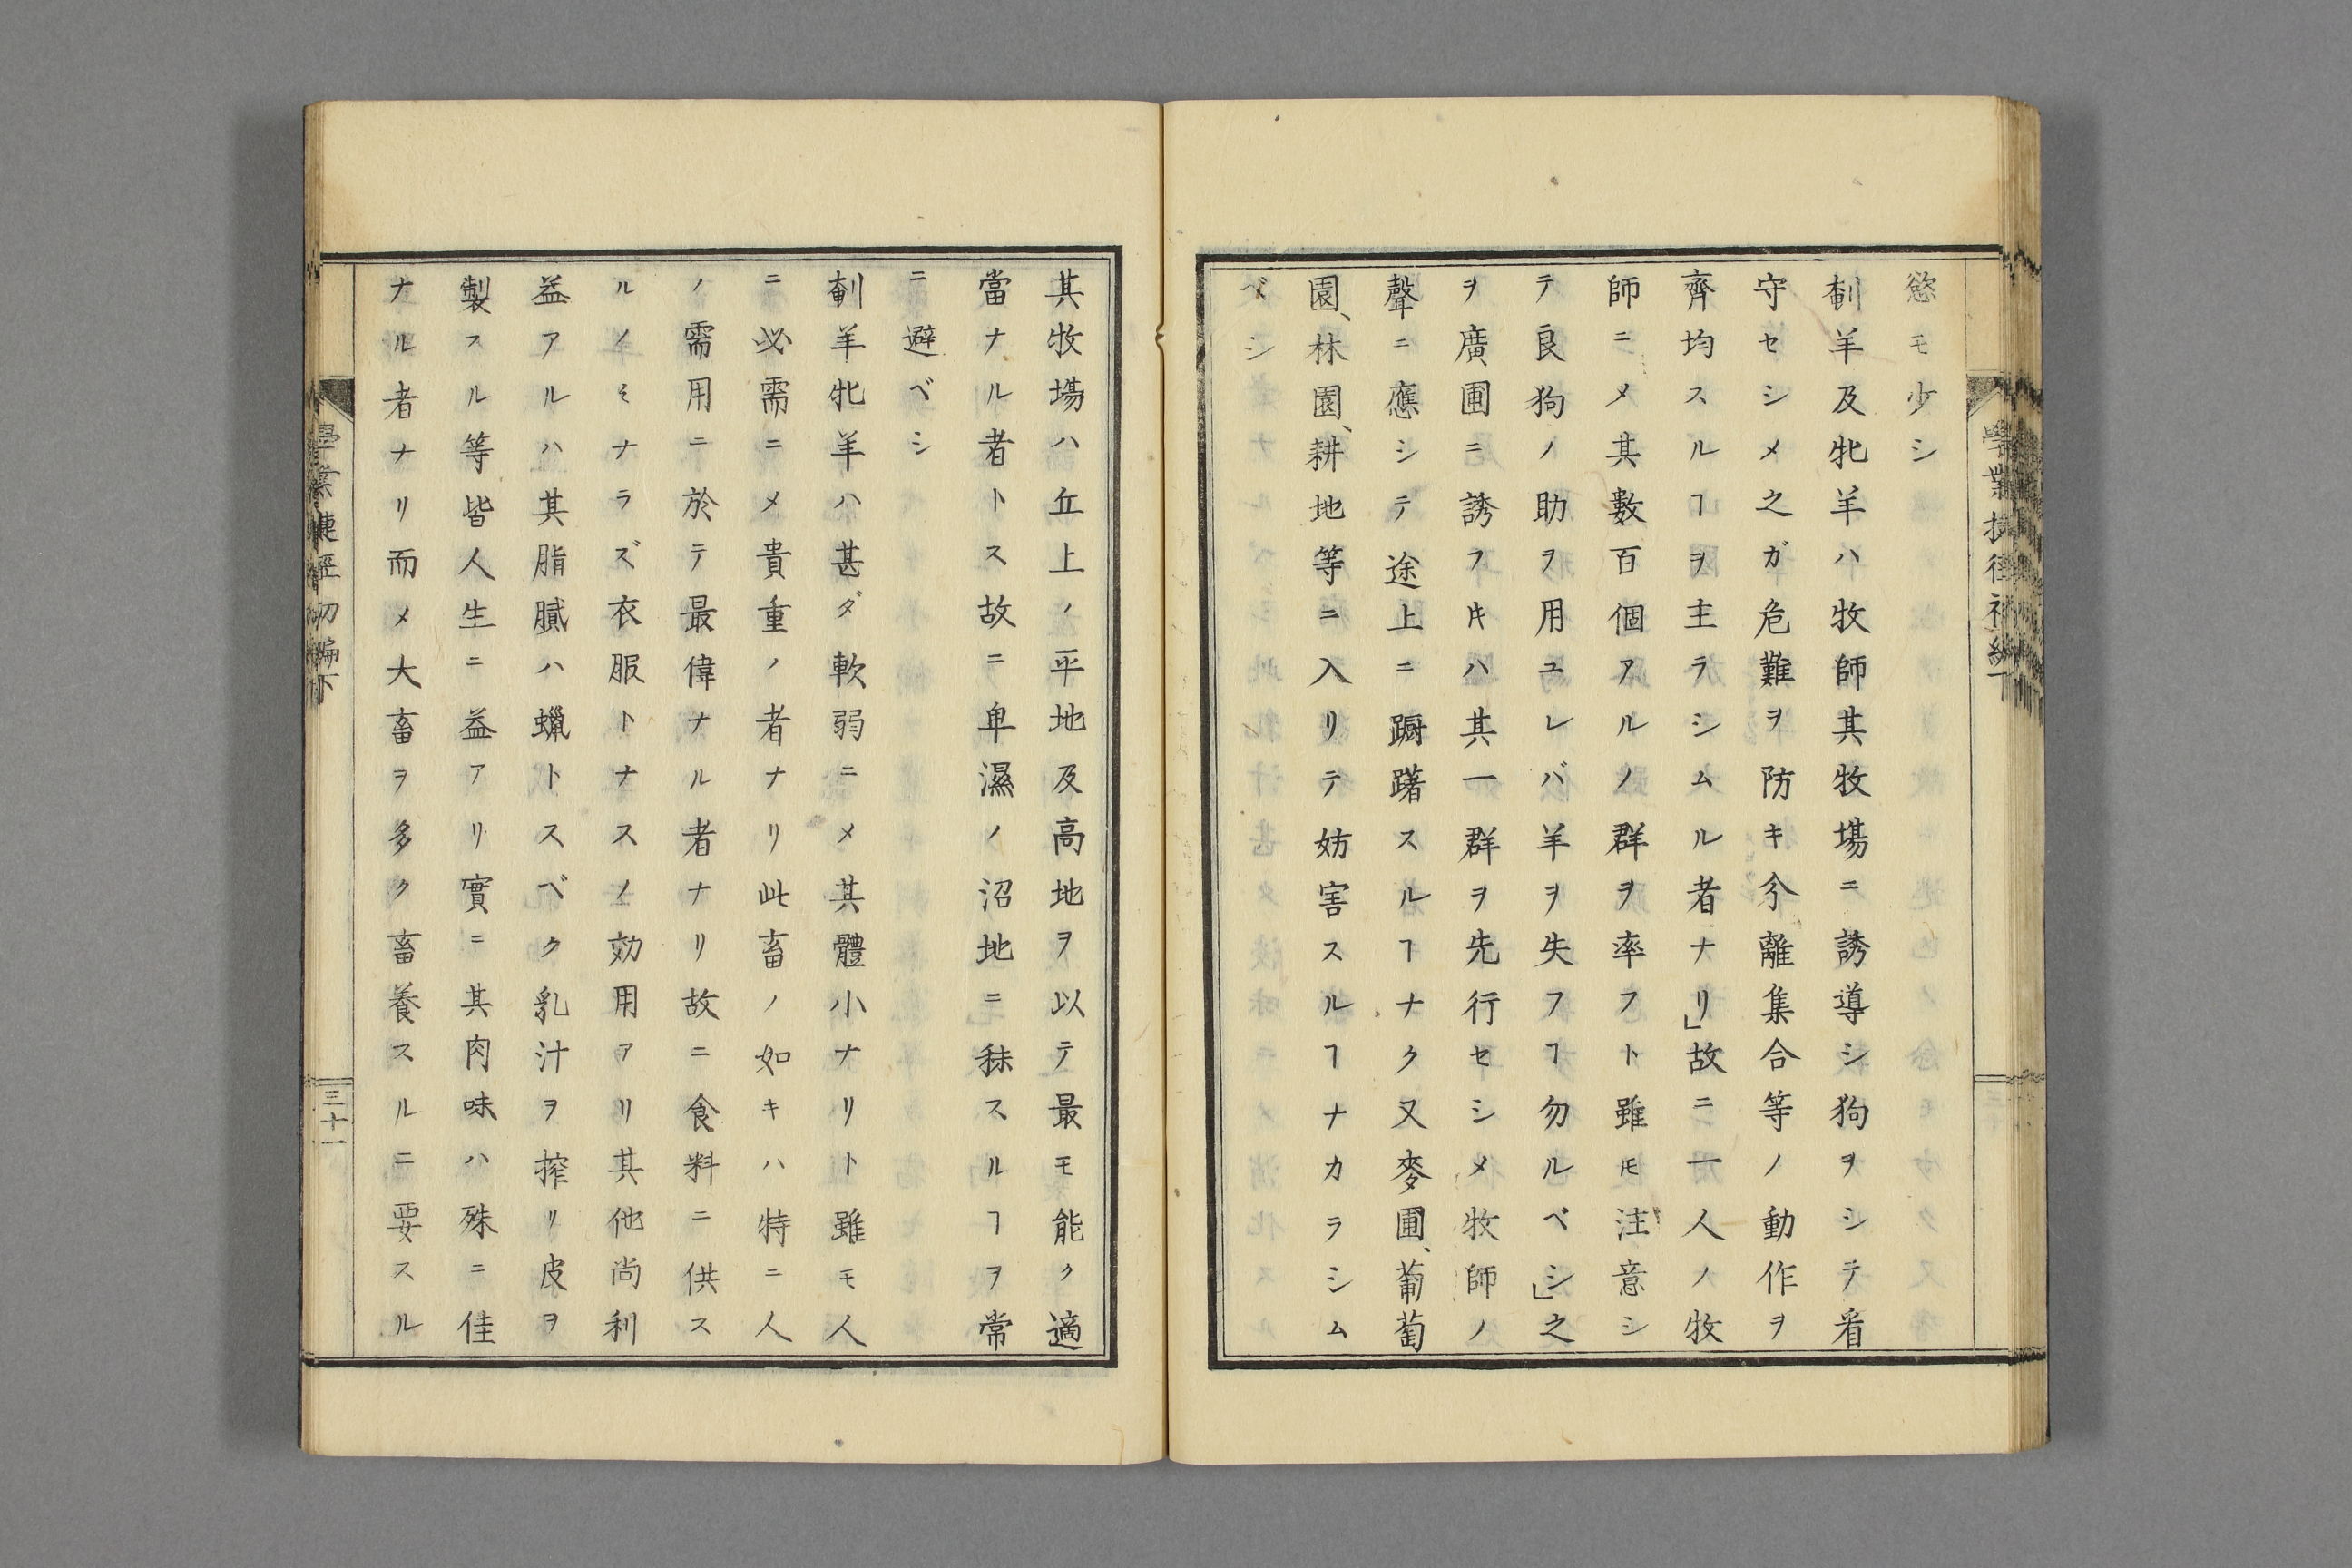 慾モ少シ
剦羊及牝羊ハ牧師其牧塲ニ誘導シ狗ヲシテ看
守セシメ之ガ危難ヲ防キ分離集合等ノ動作ヲ
齊均スルヿヲ主ラシムル者ナリ」故ニ一人ノ牧
師ニメ其數百個アルノ群ヲ率フト雖モ注意シ
テ良狗ノ助ヲ用ユレバ羊ヲ失フヿ勿ルベシ」之
ヲ廣圃ニ誘フ𪜈ハ其一群ヲ先行セシメ牧師ノ
聲ニ應シテ途上ニ躕躇スルヿナク又麥圃、葡萄
園、林園、耕地等ニ入リテ妨害スルヿナカラシム
ベシ
其牧塲ハ丘上ノ平地及高地ヲ以テ最モ能ク適
當ナル者トス故ニ卑濕ノ沼地ニ秣スルヿヲ常
ニ避ベシ
剦羊牝羊ハ甚ダ軟弱ニメ其體小ナリト雖モ人
ニ必需ニメ貴重ノ者ナリ此畜ノ如キハ特ニ人
ノ需用ニ於テ最偉ナル者ナリ故ニ食料ニ供ス
ルノミナラズ衣服トナスノ効用アリ其他尚利
益アルハ其脂膩ハ蠟トスベク乳汁ヲ搾リ皮ヲ
製スル等皆人生ニ益アリ實ニ其肉味ハ殊ニ佳
ナル者ナリ而メ大畜ヲ多ク畜養スルニ要スル
學業捷徑初編下
三十一